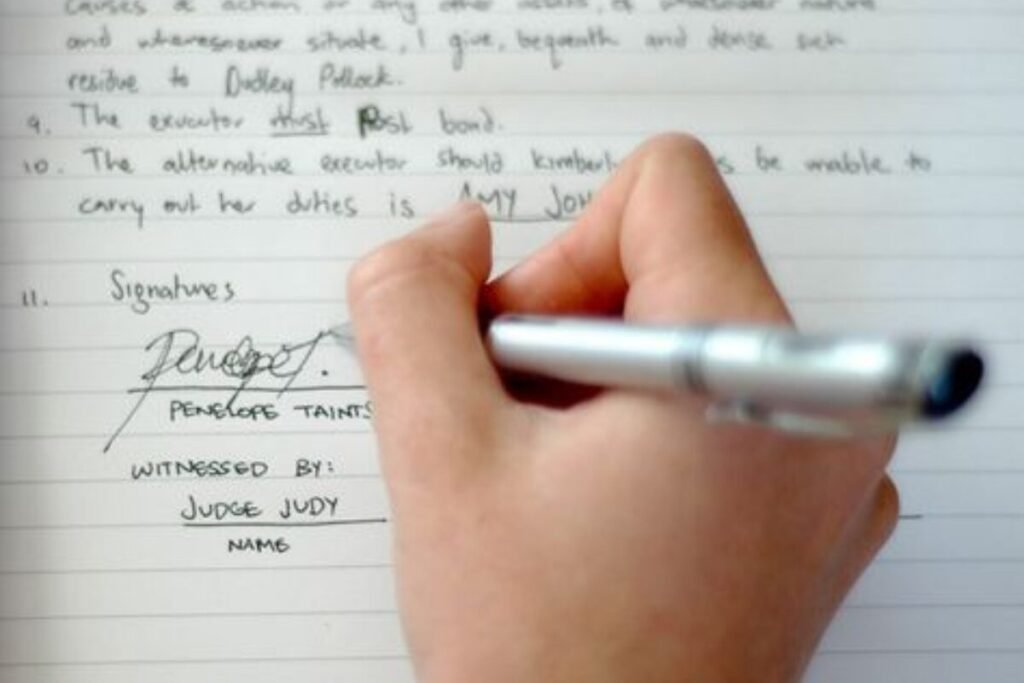 causes of action or any other assets, of whatsoever nature
and wheresoever situate, I give, bequeath and devise such
residue to Dudley Pollock.
9. The executor must Post bond.
10. The alternative executor should be unable to
carry out her duties is AMY
11. Signatures
PENELOPE
WITNESSED BY:
JUDGE JUDY
NAME